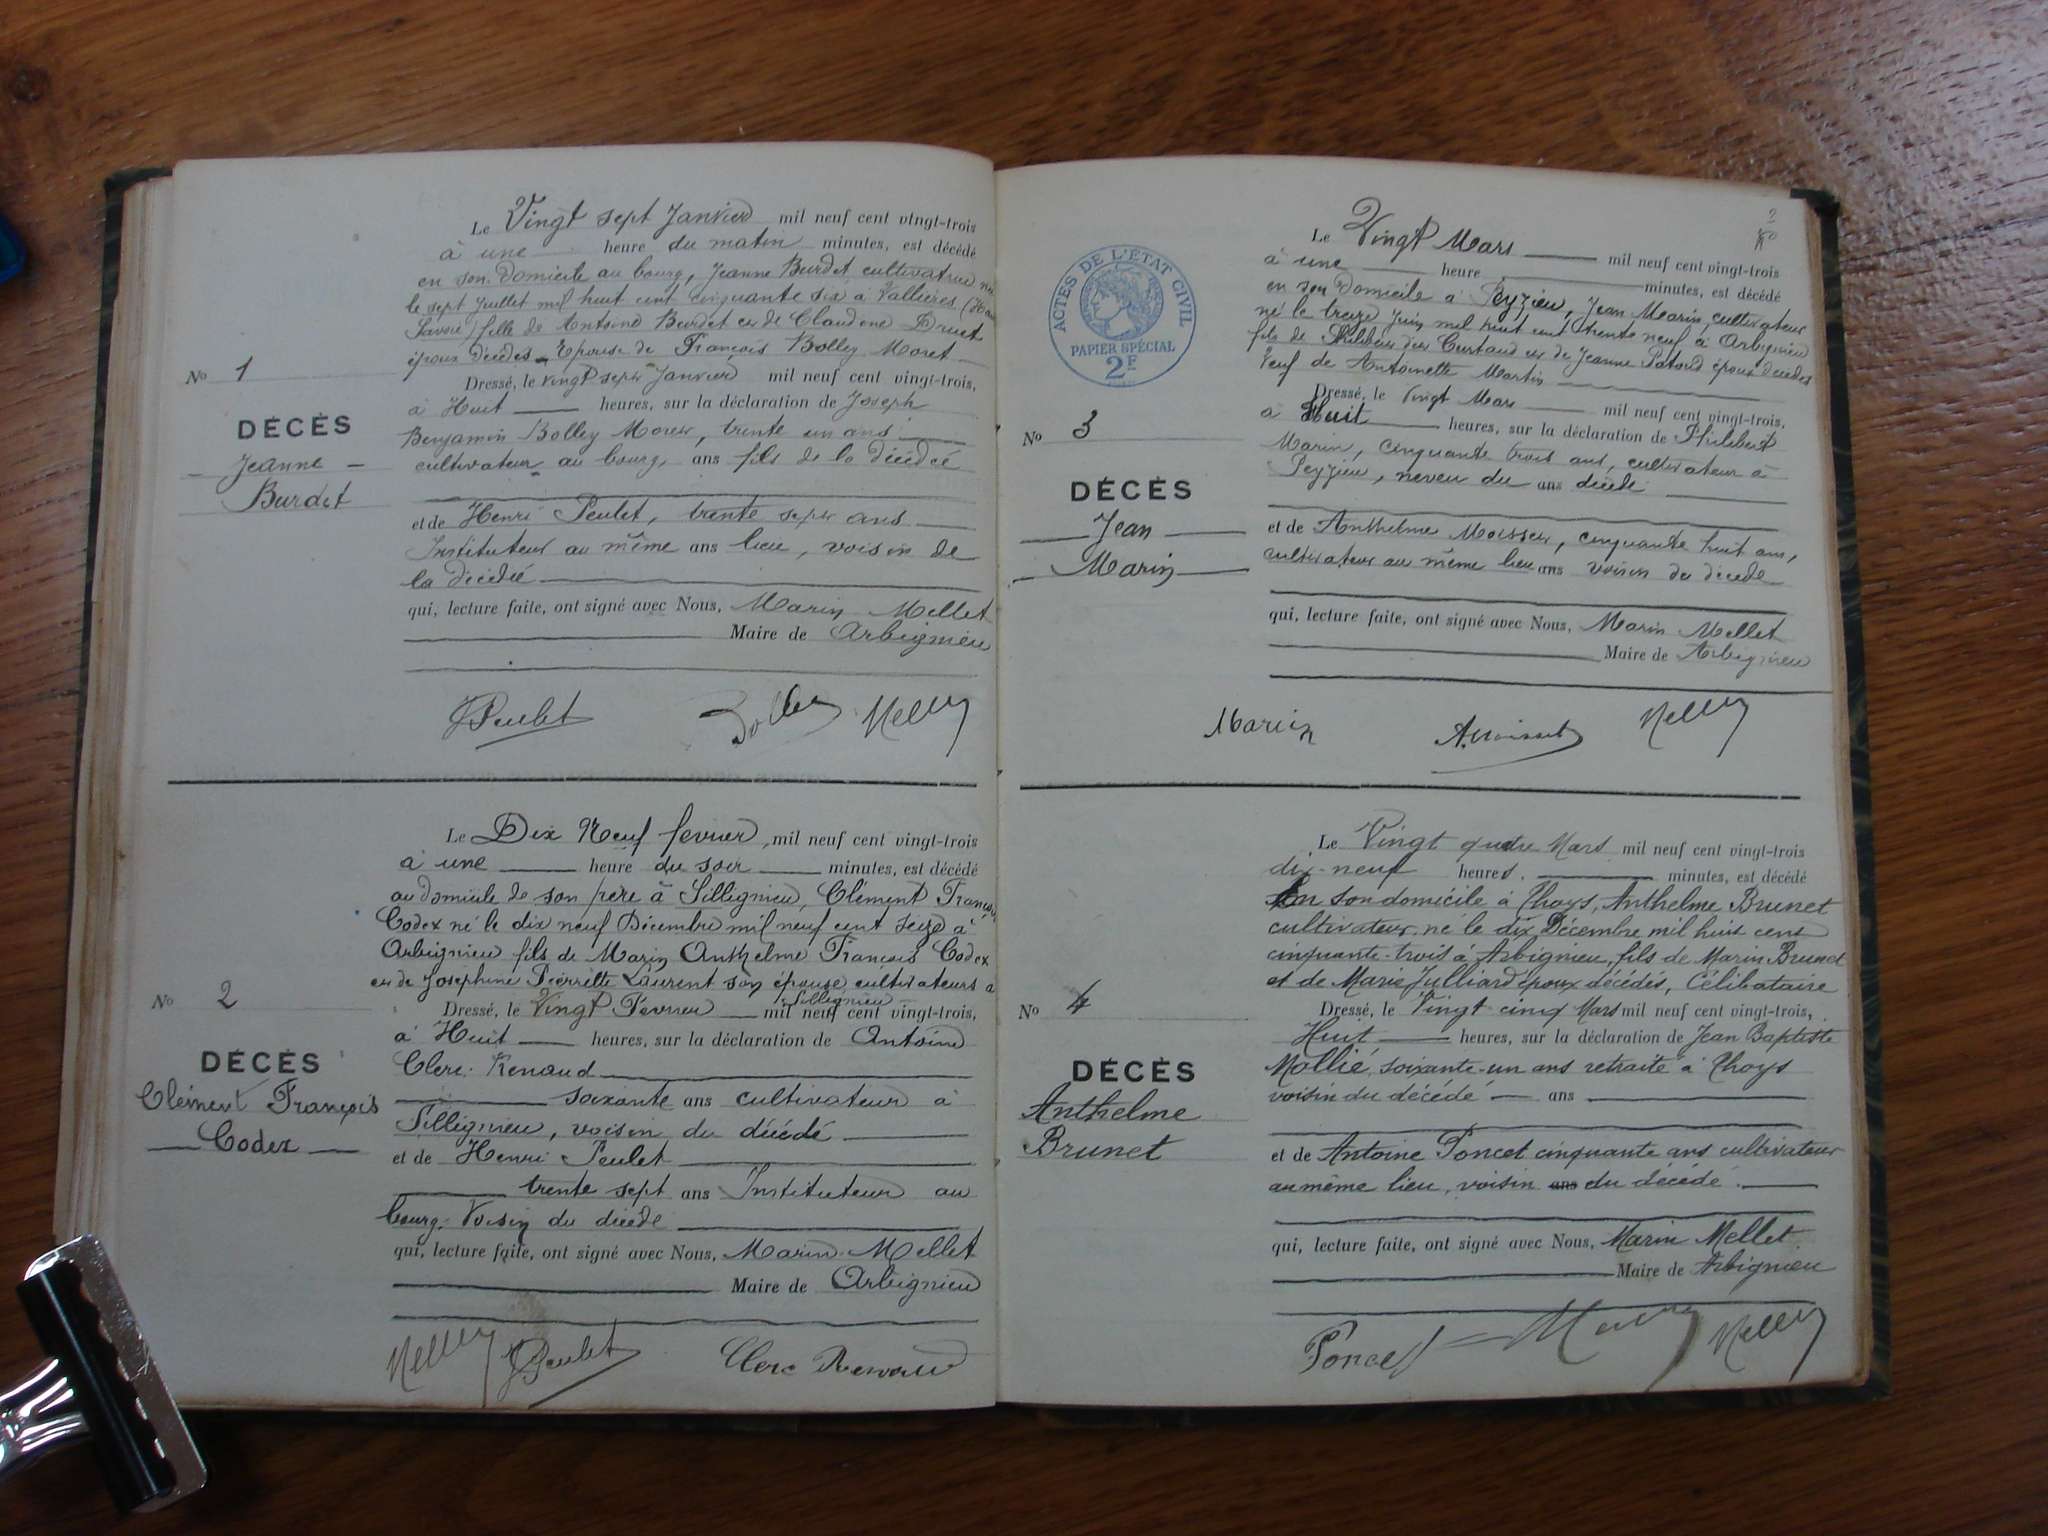 Le Vingt sept Janvier mil neuf cent vingt-trois
à une heure du matin minutes, est décédé
en son domicile au bourg, Jeanne Burdet cultivatrice née
le sept Juillet mil huit cent cinquante six à Vallières (Haute
Savoie) fille de Antoine Burdet et de Claudine Druet
époux décédés Epouse de François Bolley Moret
No 1
DÉCÈS
Jeanne
Burdet
Dressé, le vingt sept Janvier mil neuf cent vingt-trois,
à Huit heures, sur la déclaration de Joseph
Benjamin Bolley Moret, trente un ans
cultivateur au bourg, ans fils de la décédée
et de Henri Peulet, trente sept ans
Instituteur au même ans lieu, voisin de
la décédée
qui, lecture faite, ont signé avec Nous, Marin Mellet
Maire de Arbignieu
Peulet Bolley Mellet
Le Dix Neuf février, mil neuf cent vingt-trois
à une heure du soir minutes, est décédé
au domicile de son père à Sillignieu, Clément François
Codex né le dix neuf Décembre mil neuf cent seize à
Arbignieu fils de Marin Anthelme François Codex
et de Josephine Pierrette Laurent son épouse cultivateurs à
Sillignieu
No 2
DÉCÈS
Clément François
Codex
Dressé, le Vingt Février mil neuf cent vingt-trois,
à Huit heures, sur la déclaration de Antoine
Clerc-Renaud
soixante ans cultivateur à
Sillignieu, voisin du décédé
et de Henri Peulet
trente sept ans Instituteur au
bourg. Voisin du décédé
qui, lecture faite, ont signé avec Nous, Marin Mellet
Maire de Arbignieu
Mellet Peulet Clerc Renaud
2
ACTES DE L'ÉTAT CIVIL
PAPIER SPÉCIAL
2F
Le Vingt Mars mil neuf cent vingt-trois
à une heure minutes, est décédé
en son domicile à Peyzieu, Jean Marin, cultivateur
né le treize Juin mil huit cent trente neuf à Arbignieu
fils de Philibert et de Jeanne époux décédés
Veuf de Antoinette Martin
No 3
DÉCÈS
Jean
Marin
Dressé, le Vingt Mars mil neuf cent vingt-trois,
à Huit heures, sur la déclaration de Philibert
Marin, cinquante trois ans, cultivateur à
Peyzieu, neveu du ans décédé
et de Anthelme Moisset, cinquante huit ans,
cultivateur au même lieu ans voisin du décédé
qui, lecture faite, ont signé avec Nous, Marin Mellet
Maire de Arbignieu
Marin A. Moisset Mellet
Le Vingt quatre Mars mil neuf cent vingt-trois
dix-neuf heures. minutes, est décédé
En son domicile à Thoys, Anthelme Brunet
cultivateur, né le dix Décembre mil huit cent
cinquante-trois à Arbignieu, fils de Marin Brunet
et de Marie Julliard époux décédés, Célibataire
No 4
DÉCÈS
Anthelme
Brunet
Dressé, le Vingt-cinq Mars mil neuf cent vingt-trois,
Huit heures, sur la déclaration de Jean Baptiste
Mollié, soixante-un ans retraité à Thoys
voisin du décédé ans
et de Antoine Poncet cinquante ans cultivateur
au même lieu, voisin ans du décédé.
qui, lecture faite, ont signé avec Nous, Marin Mellet
Maire de Arbignieu
Poncet Mellet